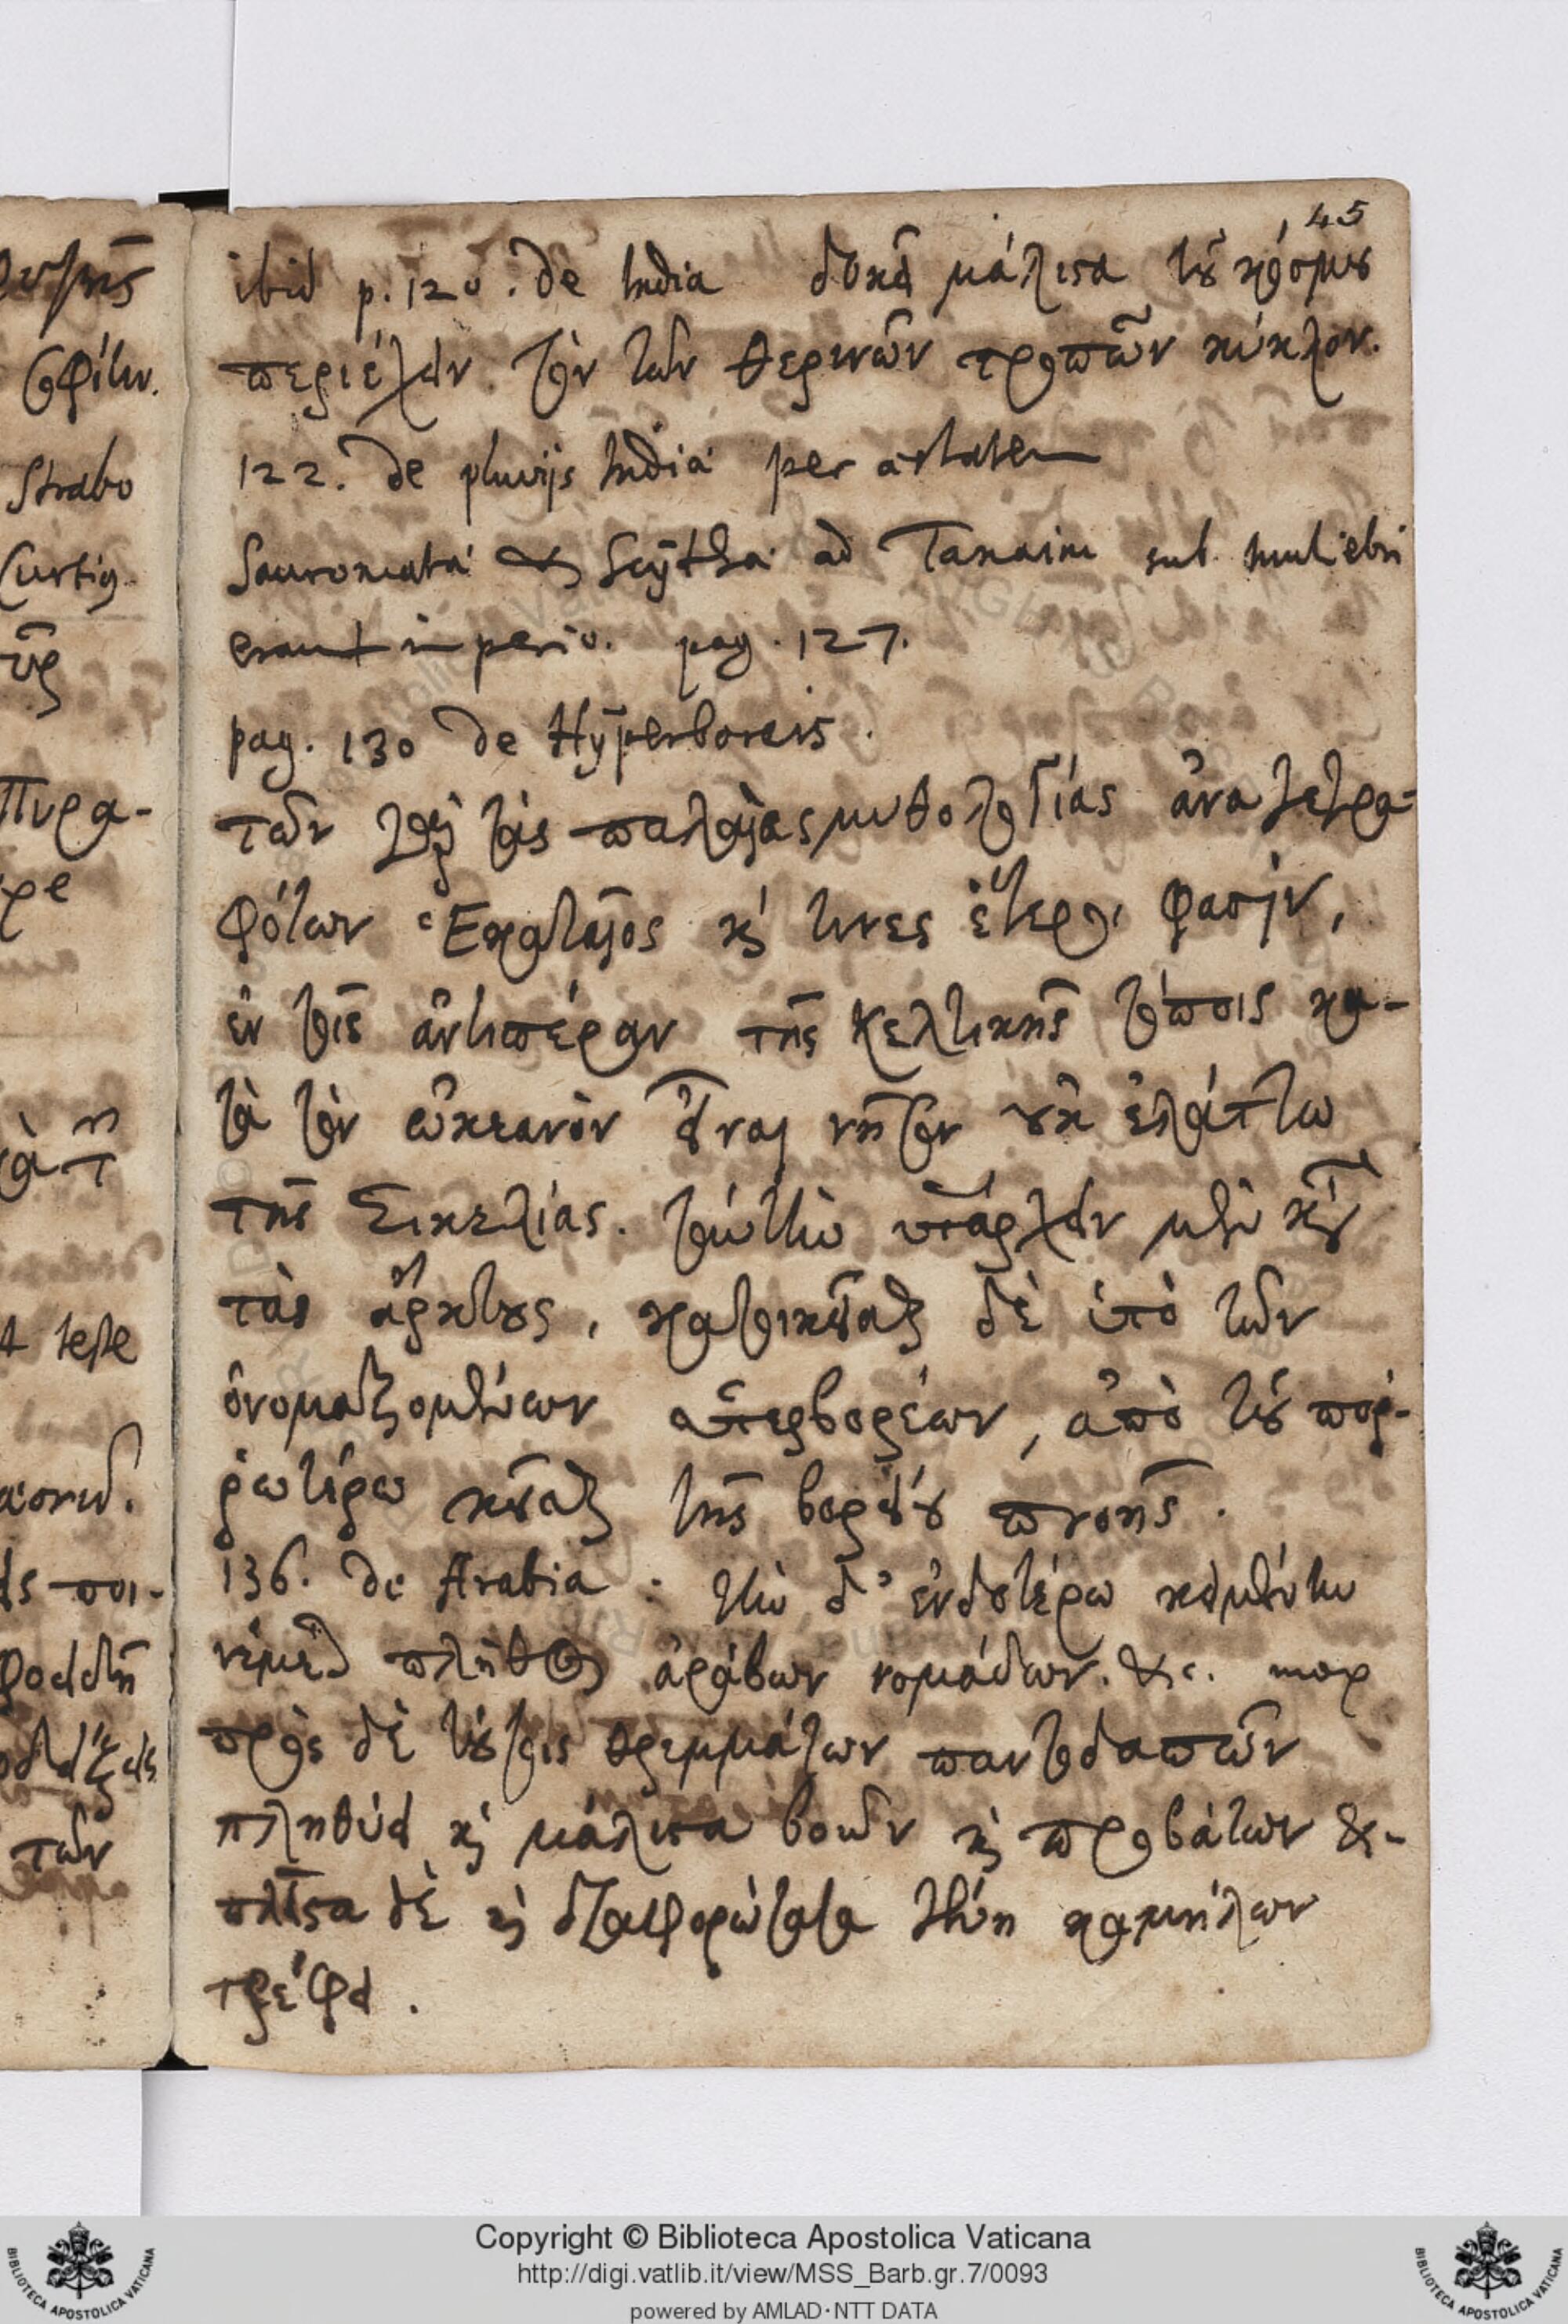 45
ibid p. 120. de India δοκεῖ μάλιστα τοῦ κόσμου
περιέχειν τὸν τῶν θερινῶν τροπῶν κύκλον.
122. de pluvijs India per aestatem
Sauromata & Scytha ad Tanaim sub muliebri
erant imperio. pag. 127.
pag. 130 de Hyperboreis.
τῶν τὰς παλαιὰς μυθολογίας ἀναγεγρα-
φότων Ἑκαταῖος καί τινες ἕτεροι φασὶν,
ἐν τοῖς ἀντιπέραν τῆς κελτικῆς τόποις κα-
τὰ τὸν ὠκεανὸν εἶναι νῆσον οὐκ ἐλάττω
τῆς Σικελίας. ταύτην ὑπάρχειν μὲν κατὰ
τὰς ἄρκτους, κατοικεῖσθαι δὲ ὑπὸ τῶν
ὀνομαζομένων ὑπερβορέων, ἀπὸ τοῦ πορ-
ρωτέρω κεῖσθαι τῆς βορείου πνοῆς.
136. de Arabia : τὴν δ' ἐνδοτέρω κειμένην
νέμεται πλῆθος ἀράβων νομάδων. &c. mox
πρὸς δὲ τούτοις θρεμμάτων παντοδαπῶν
πληθύει καὶ μάλιστα βοῶν καὶ προβάτων &-
πλεῖστα δὲ καὶ διαφορώτατα γένη καμήλων
τρέφει.
Strabo
των
Copyright © Biblioteca Apostolica Vaticana
http://digi.vatlib.it/view/MSS_Barb.gr.7/0093
powered by AMLAD·NTT DATA
BIBLIOTECA APOSTOLICA VATICANA
BIBLIOTECA APOSTOLICA VATICANA